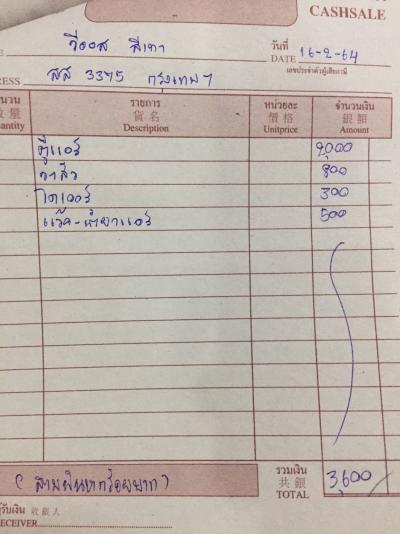 CASHSALE
วีออส สีเทา
วันที่ 16-2-64
DATE
เลขประจำตัวผู้เสียภาษี
ESS สส 3375 กรุงเทพฯ
รายการ หน่วยละ จำนวนเงิน
數量 貨名 價格 銀額
antity Description Unitprice Amount
ตู้แอร์ 2,000
วาล์ว 800
ไดเออร์ 300
แว๊ค-น้ำยาแอร์ 500
รวมเงิน
共銀
TOTAL
(สามพันหกร้อยบาท) 3,600
ผู้รับเงิน 收銀人
RECEIVER